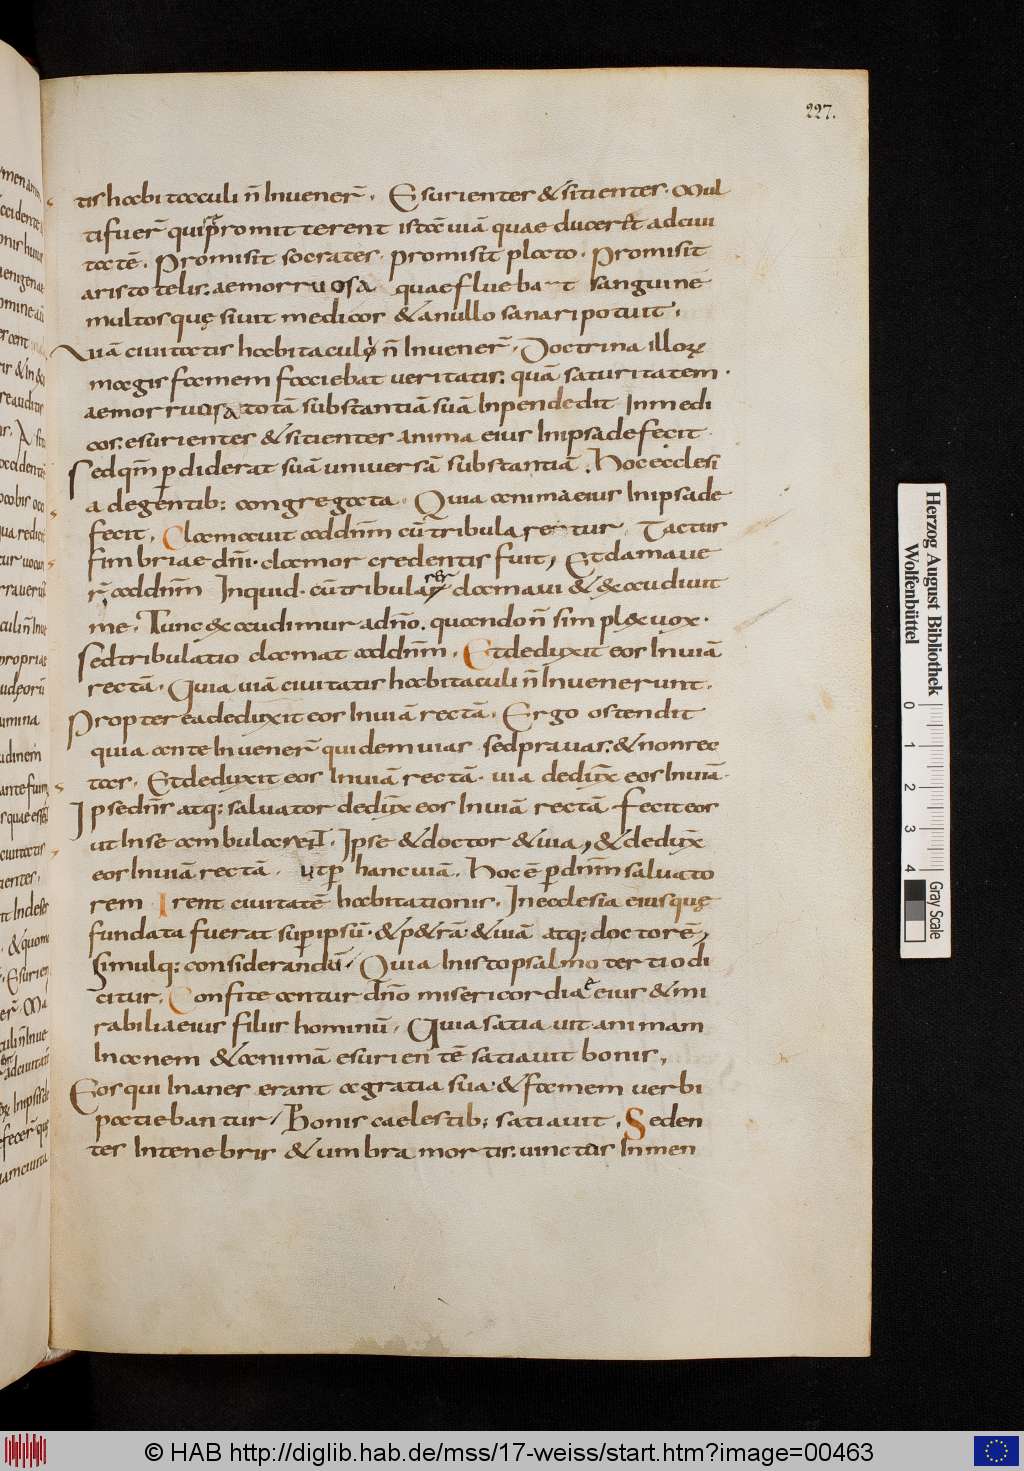 227.
tis habitaculi n̄ inuener̄. Esurientes & sitientes. Mul
ti fuer̄ qui promitterent ista uiā quae ducer& ad ciui
tatē. Promisit socrates. promisit plato. promisit
aristotelis. aemorruosa quae fluebat sanguine
multosquę siuit medicos & a nullo sanari potuit.
Uiā ciuitatis habitaculi n̄ inuener̄. Doctrina illoꝝ
magis famem faciebat ueritatis. quā saturitatem.
aemorruosa totā substantiā suā inpendedit in medi
cos. esurientes & sitientes anima eius in ipsa defecit.
Sed qm̄ ꝑdiderat suā uniuersā substantiā. Hoc ecclesi
a de gentib; congregata. Quia anima eius in ipsa de
fecit. Clamauit ad dn̄m cū tribularetur. Tactus
fimbriae dn̄i. clamor credentis fuit, Et clamaue
r̄ ad dn̄m Inquid. cū tribularer clamaui & exaudiuit
me. Tunc exaudimur a dn̄o. quando n̄ simplex uox.
Sed tribulatio clamat ad dn̄m. Et deduxit eos in uiā
rectā. Quia uiā ciuitatis habitaculi n̄ inuenerunt.
Propterea deduxit eos in uiā rectā. Ergo ostendit
quia ante inuener̄ quidem uias sed prauas. & non rec
tas. Et deduxit eos in uiā rectā. uia dedux̄ eos in uiā.
Ipse dn̄s atq; saluator dedux̄ eos in uiā rectā. fecit eos
ut in se ambularent. Ipse & doctor & uia, & dedux̄
eos in uiā rectā. ut ꝑ hanc uiā. Hoc ē ꝑ dn̄m saluato
rem Irent ciuitatē habitationis. In ecclesia eiusquę
fundata fuerat suꝑ ipsū. & p&rā & uiā atq; doctorē,
Simulq; considerandū. Quia in isto psalmo tertio di
citur. Confiteantur dn̄o misericordiae eius & mi
rabilia eius filiis hominū. Quia satiauit animam
inanem & animā esurientē satiauit bonis,
Eos qui inanes erant a gratia sua & famem uerbi
patiebantur, Bonis caelestib; satiauit. Seden
tes in tenebris & umbra mortis. uinctus in men
Herzog August Bibliothek
Wolfenbüttel
0 1 2 3 4
Gray Scale
© HAB http://diglib.hab.de/mss/17-weiss/start.htm?image=00463